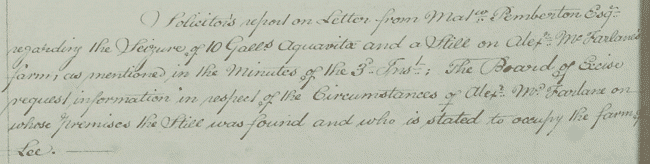 Solicitors report on Letter from Matw. Pemberton Esqr.
regarding the Seizure of 10 Galls Aquavitæ and a Still on Alexr. McFarlane's
farm; as mentioned in the Minutes of the 3d. Inst.; The Board of Excise
request information in respect of the Circumstances of Alexr. McFarlane on
whose premises the Still was found and who is stated to occupy the farm of
Lee. —